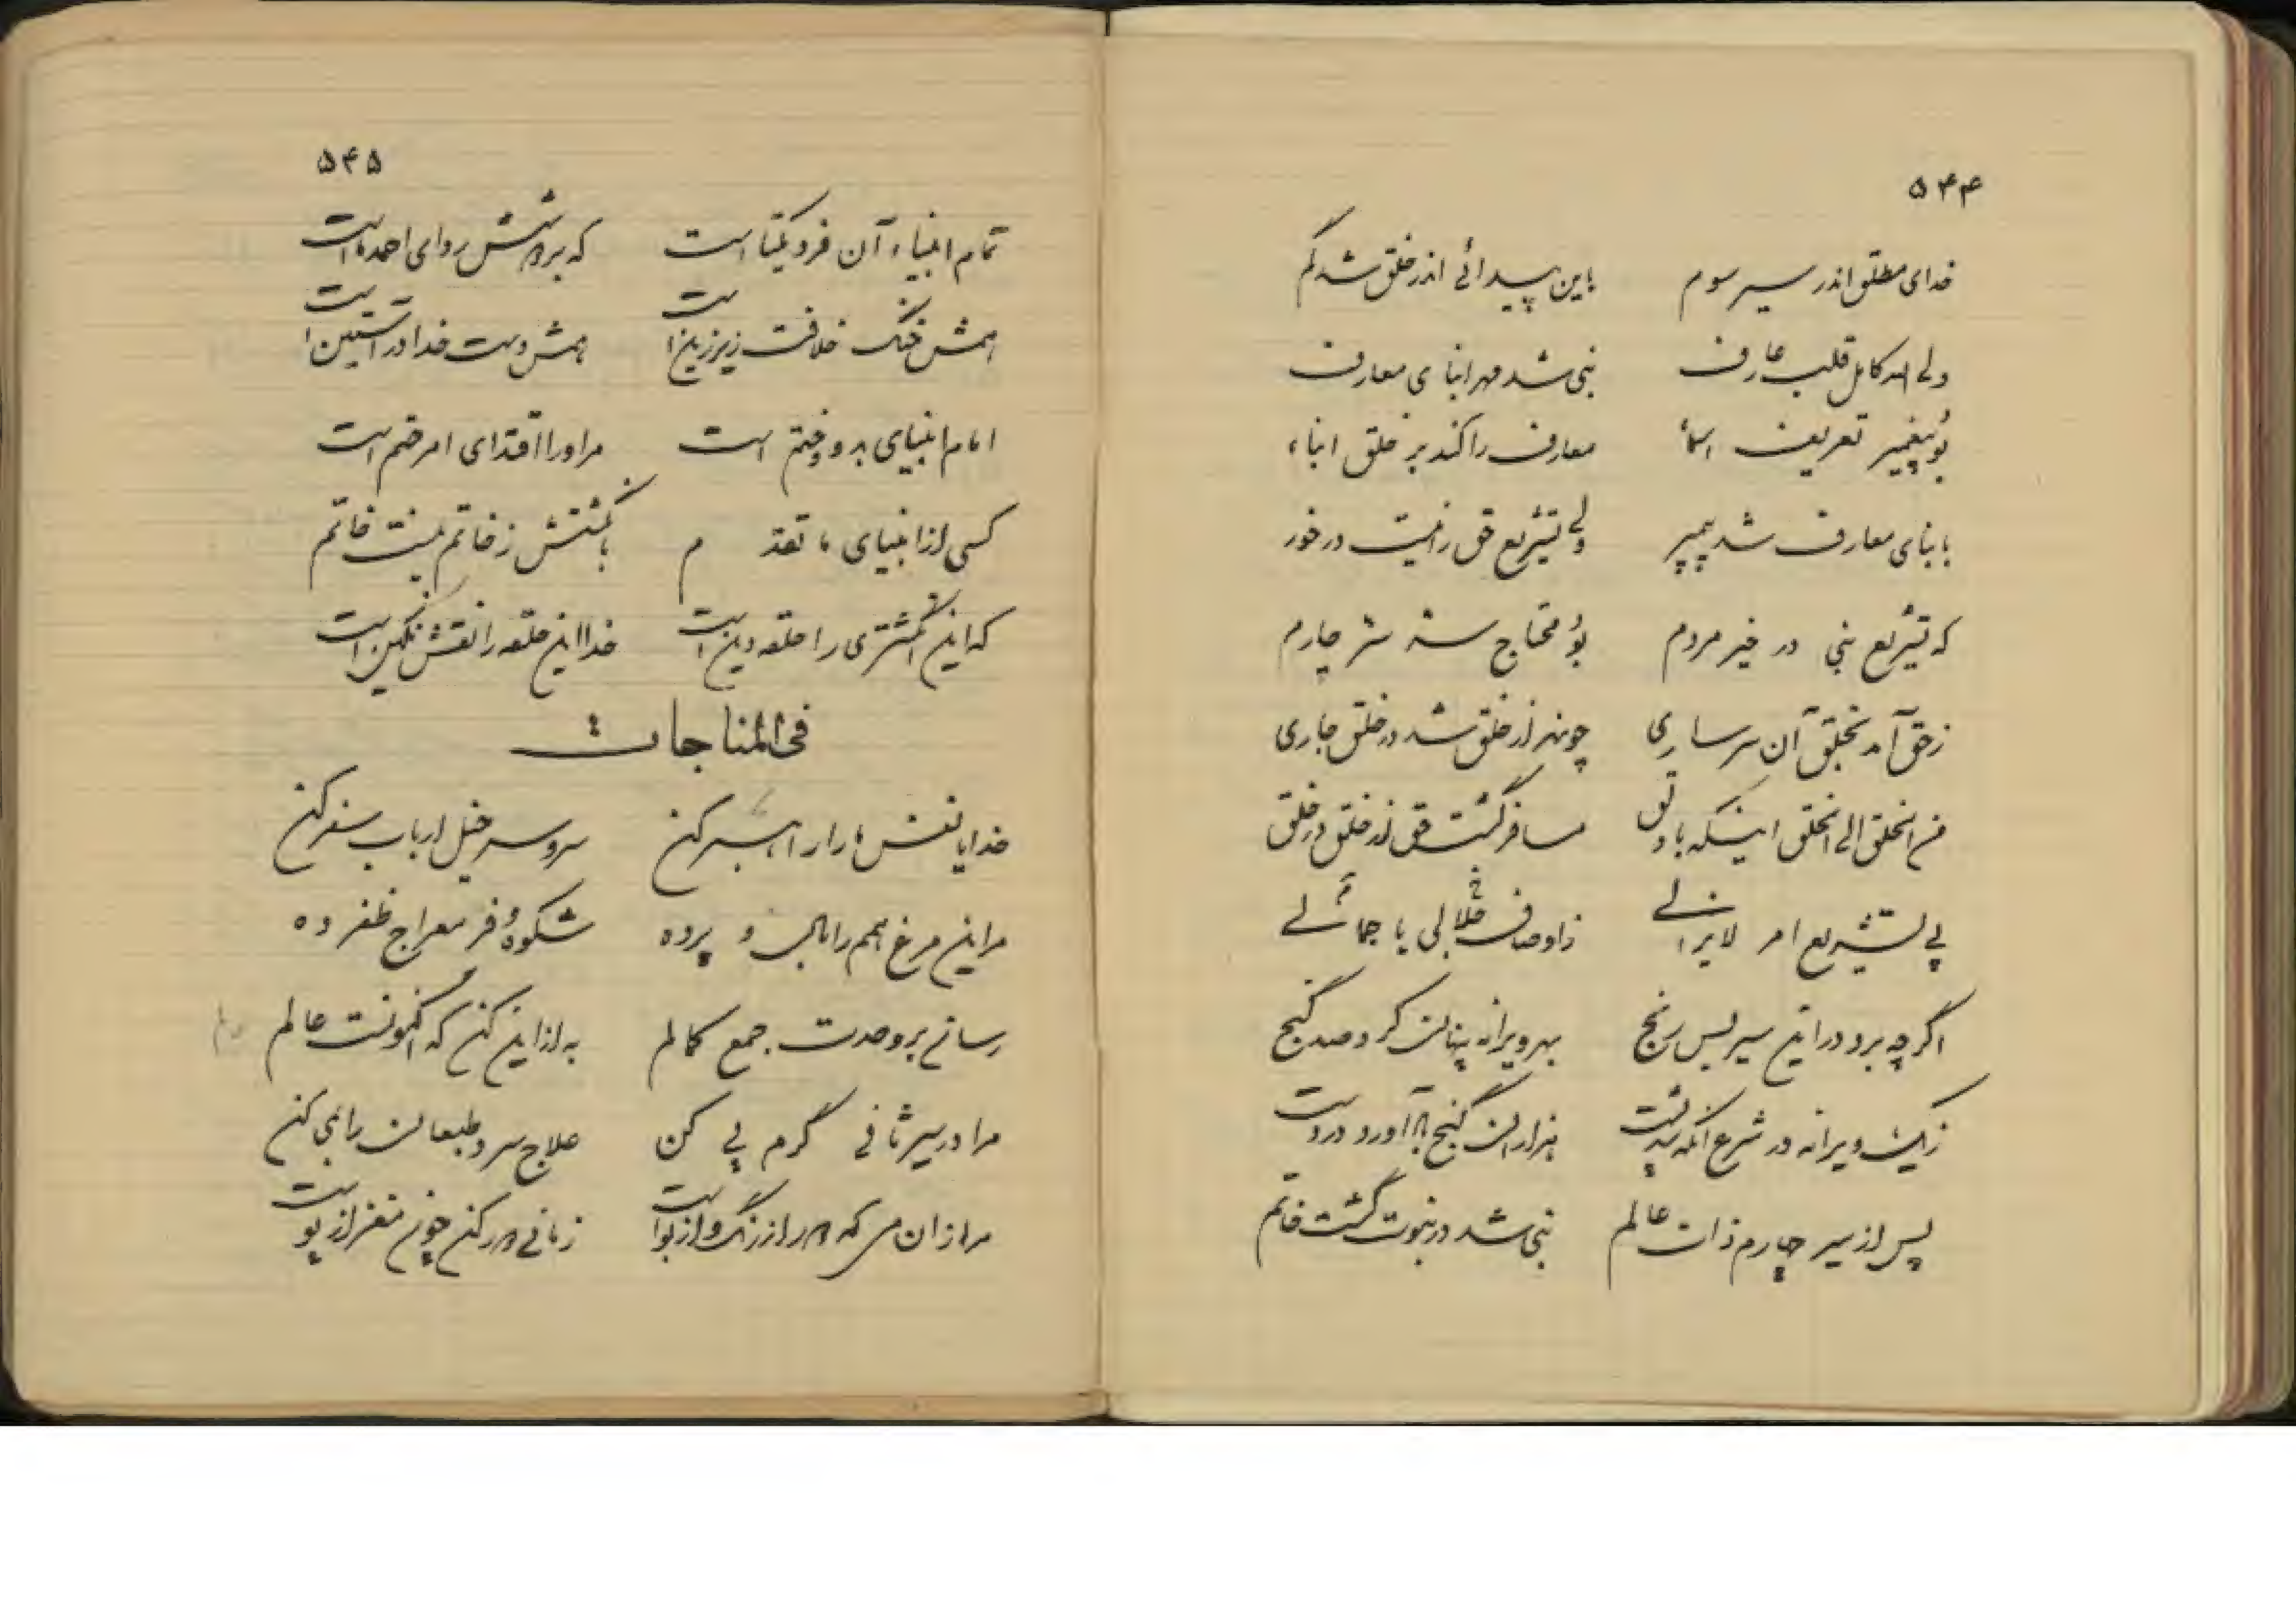 ۵۴۴
خدای مطلق اندر سیر سوم باین پیدائی اندر خلق شد گم
ولی الله کامل قلب عارف نبی شد مهر انبای معارف
بود پیغمبر تعریف اسماء معارف را کند بر خلق انباء
بانبای معارف شد پیمبر ولی تشریع حق را نیست در خور
که تشریع نبی در خیر مردم بود محتاج سیر چارم
ز حق آمد بخلق آن سر ساری چونهر از خلق شد در خلق جاری
من الخلق الی الخلق اینکه با دلق مسافر گشت حق از خلق در خلق
پی تشریع امر لایزالی ز اوصاف جلالی یا جمالی
اگر چه برد در این سیر بس رنج بهر ویرانه پنهان کرد صد گنج
زیک ویرانه در شرع آنکه بد گشت هزاران گنج آورد در دست
پس از سیر چارم ذات عالم نبی شد در نبوت گشت خاتم
۵۴۵
تمام انبیاء آن فرد یکتا است که بر دوشش ردای احمد ما است
همش خنگ خلافت زیر زین است همش دست خدا در آستین است
امام انبیای بدو و ختم است مر او را اقتدای امر ختم است
کسی از انبیای ما تقدم بانگشتش ز خاتم نیست خاتم
که این انگشتری را حلقه دین است خدا این حلقه را نقش نگین است
فی المناجات
خدایا نفس ما را راهبر کن سر و سرخیل ارباب سفر کن
مر این مرغ همم را بال و پر ده شکوه و فر معراج ظفر ده
رسانی بر وحدت جمع کمالم به از این کن که اکنونست عالم
مرا در سیر ثانی گرم پی کن علاج سرد طبعان را بمی کن
مر از ان می که دور از رنگ و از بو است زمانی دور کن چون مغز از پوست